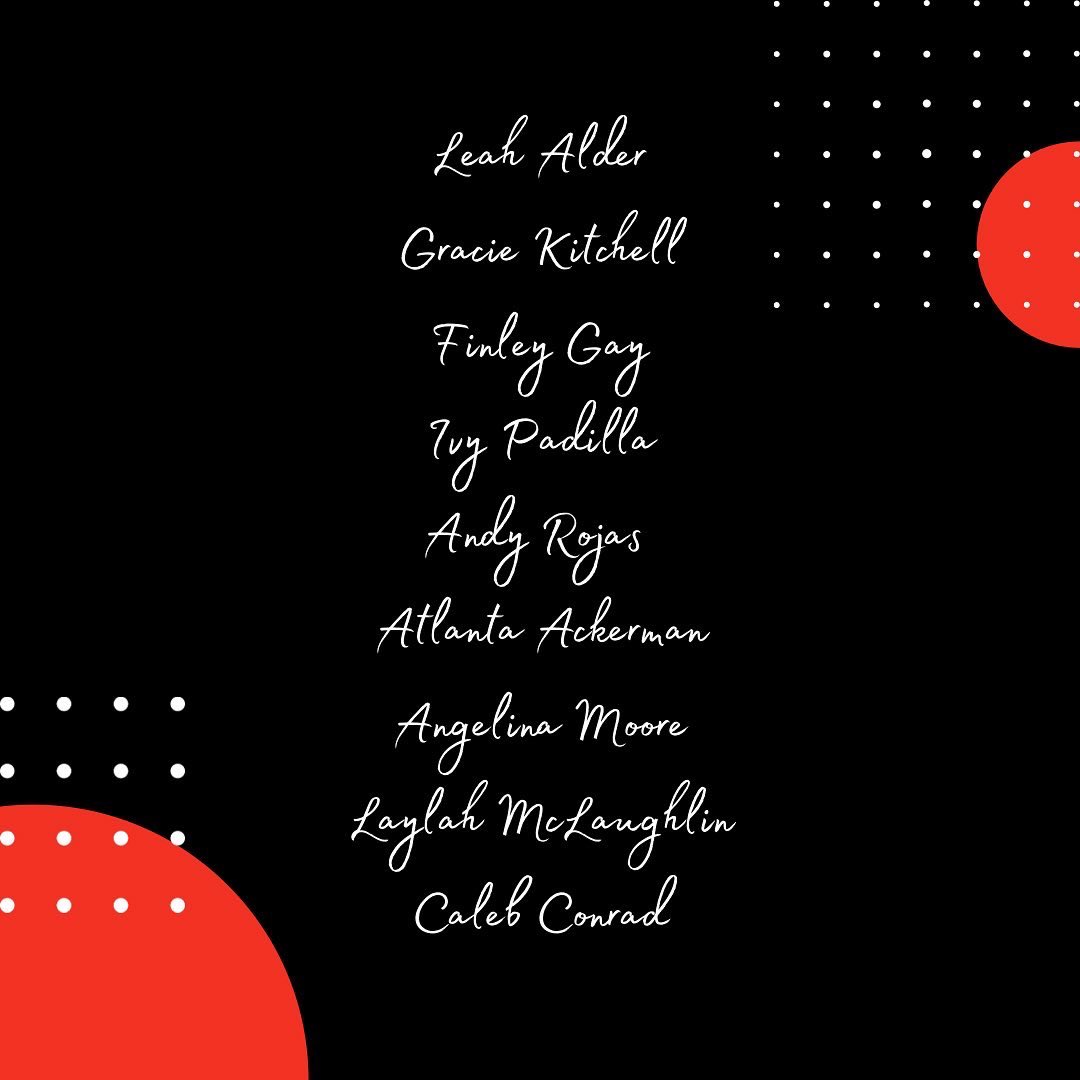 Leah Alder
Gracie Kitchell
Finley Gay
Ivy Padilla
Andy Rojas
Atlanta Ackerman
Angelina Moore
Laylah McLaughlin
Caleb Conrad